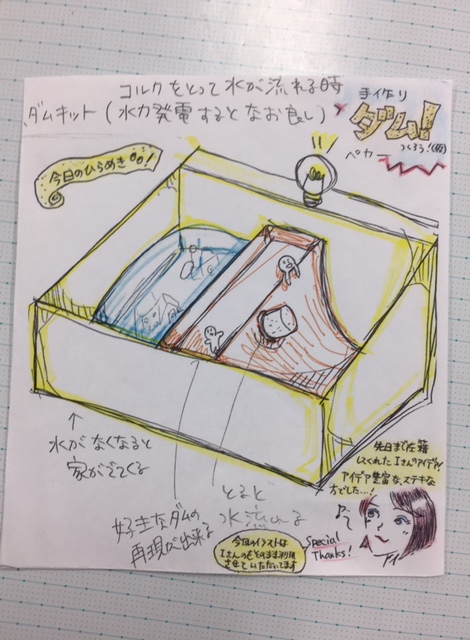 コルクをとって水が流れる時
ダムキット(水力発電するとなお良し)
手作り
ダム!
つくろう!(仮)
ペカー
今日のひらめき!
↑
水がなくなると
家がでてくる
好きなダムの
再現が出来る
とると
水流れる
先日まで在籍
してくれたIさんのアイデア!
アイデア豊富な、ステキな
方でした…!
今回のイラストは
Iさんのをそのまま利用
させていただいてます
Special
Thanks!